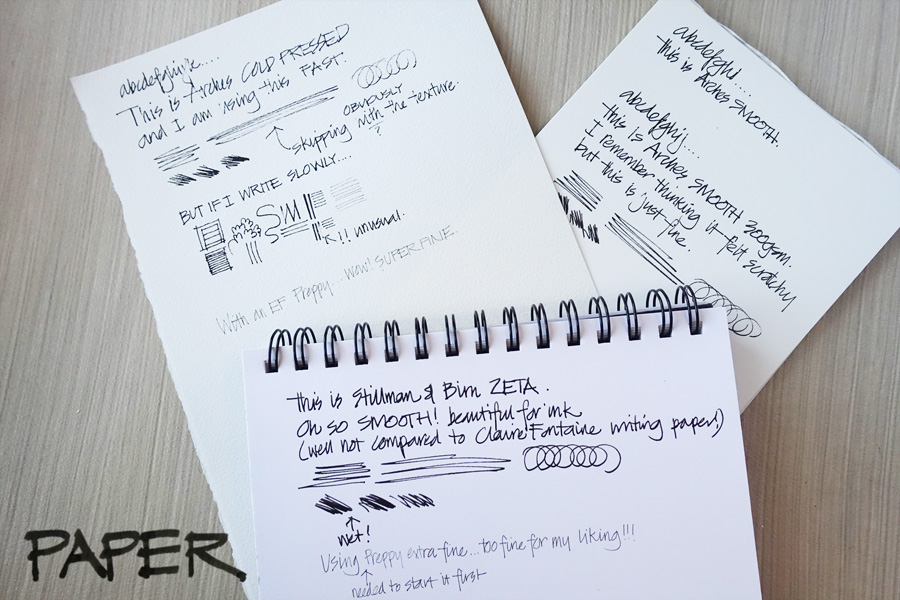 abcdefghijk....
This is Arches COLD PRESSED
and I am using this FAST.
OBVIOUSLY
skipping with the texture.
?
BUT IF I WRITE SLOWLY....
S'M
!! unusual.
With an EF Preppy. Wow! SUPER FINE.
abcdefghi....
this is Arches SMOOTH.
abcdefghij....
this is Arches SMOOTH 300gsm.
I remember thinking it felt scratchy
but this is just fine.
this is Stillman & Birn ZETA.
Oh so SMOOTH! beautiful for ink
(well not compared to Claire Fontaine writing paper!)
wet!
Using Preppy extra-fine...too fine for my liking!!!
needed to start it first
PAPER